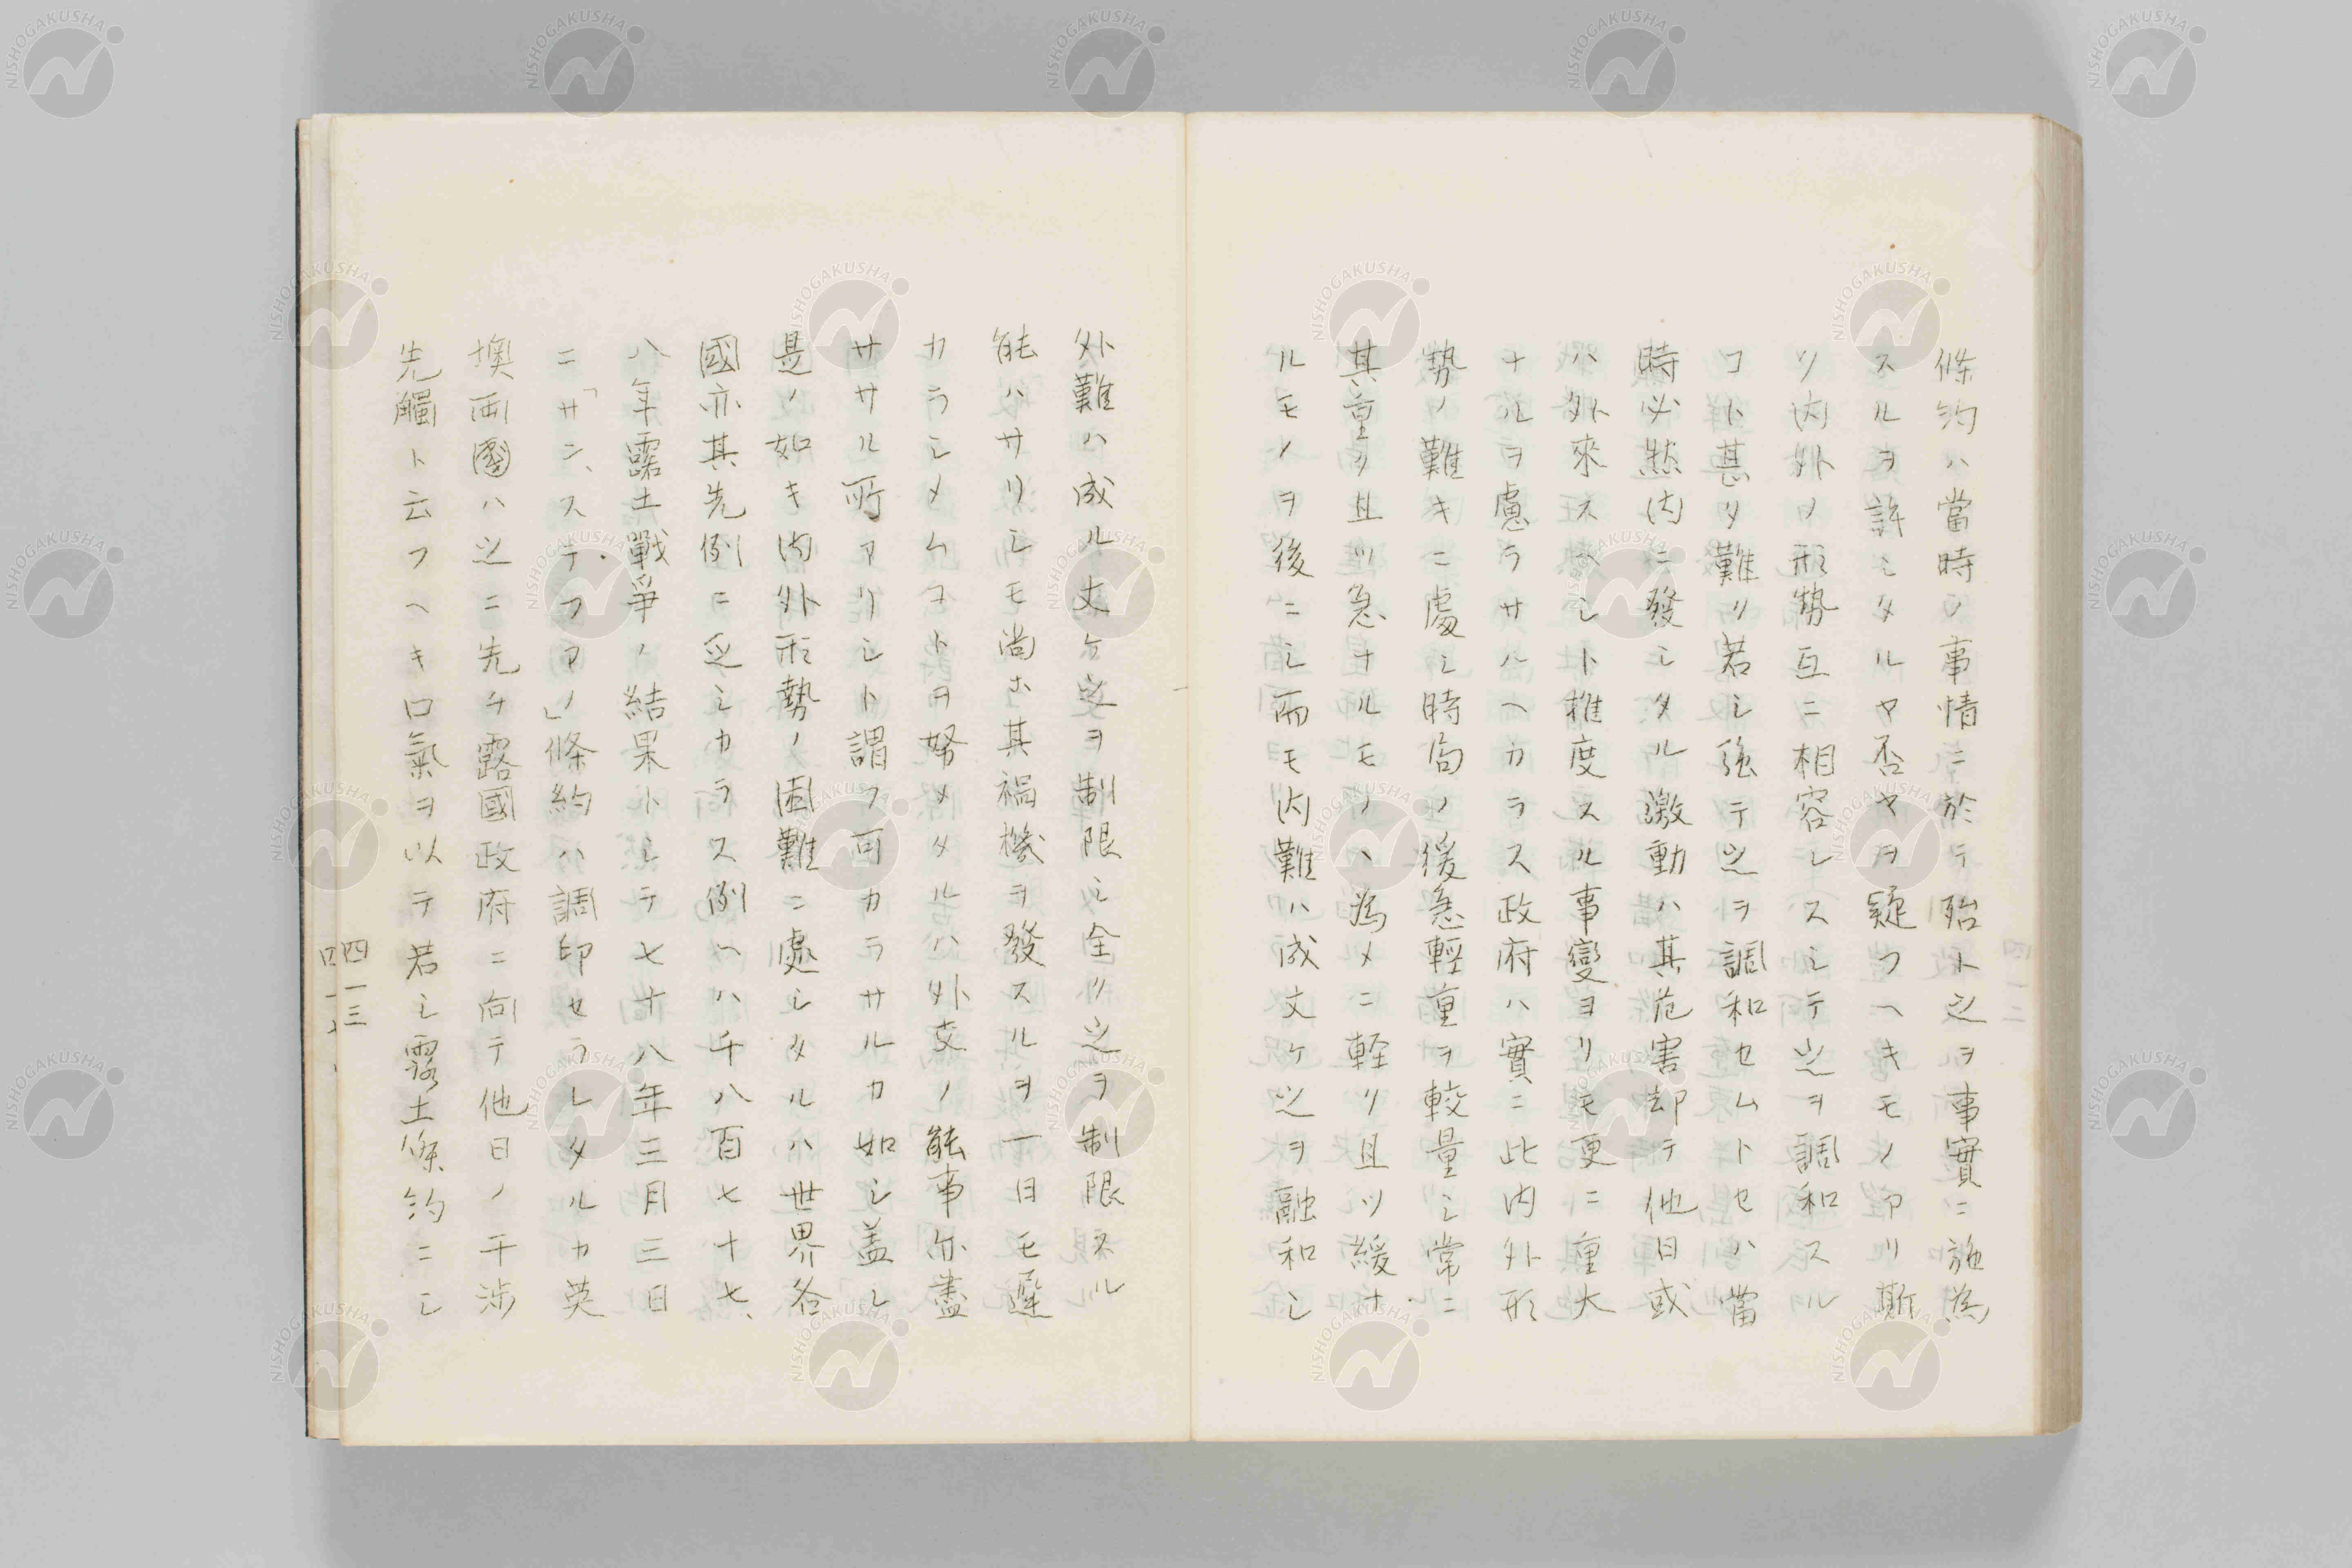 條約ハ當時ノ事情ニ於テ殆ト之ヲ事實ニ施為
スルヲ許シタルヤ否ヤヲ疑フヘキモノアリ斯
ク內外ノ形勢互ニ相容レスシテ之ヲ調和スル
コト甚タ難リ若シ强テ之ヲ調和セムトセハ當
時必然內ニ發シタル激動ハ其危害却テ他日或
ハ外來スヘシト推度スル事變ヨリモ更ニ重大
ナルヲ慮ラサルヘカラス政府ハ實ニ此內外形
勢ノ難キニ處シ時局ノ緩急輕重ヲ較量シ常ニ
其重ク且ツ急ナルモノハ為メニ軽ク且ツ緩ナ
ルモノヲ後ニシ而モ內難ハ成丈ケ之ヲ融和シ
外難ハ成ル丈ケ之ヲ制限シ全ク之ヲ制限スル
能ハサリシモ尚ホ其禍機ヲ發スルヲ一日モ遲
カラシメムコトヲ努メタルハ外交ノ能事亦盡
サヽル所アリシト謂フ可カラサルカ如シ盖シ
是ノ如キ內外形勢ノ困難ニ處シタルハ世界各
國亦其先例ニ乏シカラス例ヘハ千八百七十七、
八年露土戰爭ノ結果トシテ七十八年三月三日
ニ「サン、ステファノ」條約ハ調印セラレタルカ英
墺両國ハ之ニ先チ露國政府ニ向テ他日ノ干渉
先觸ト云フヘキ口氣ヲ以テ若シ露土條約ニシ
四一三